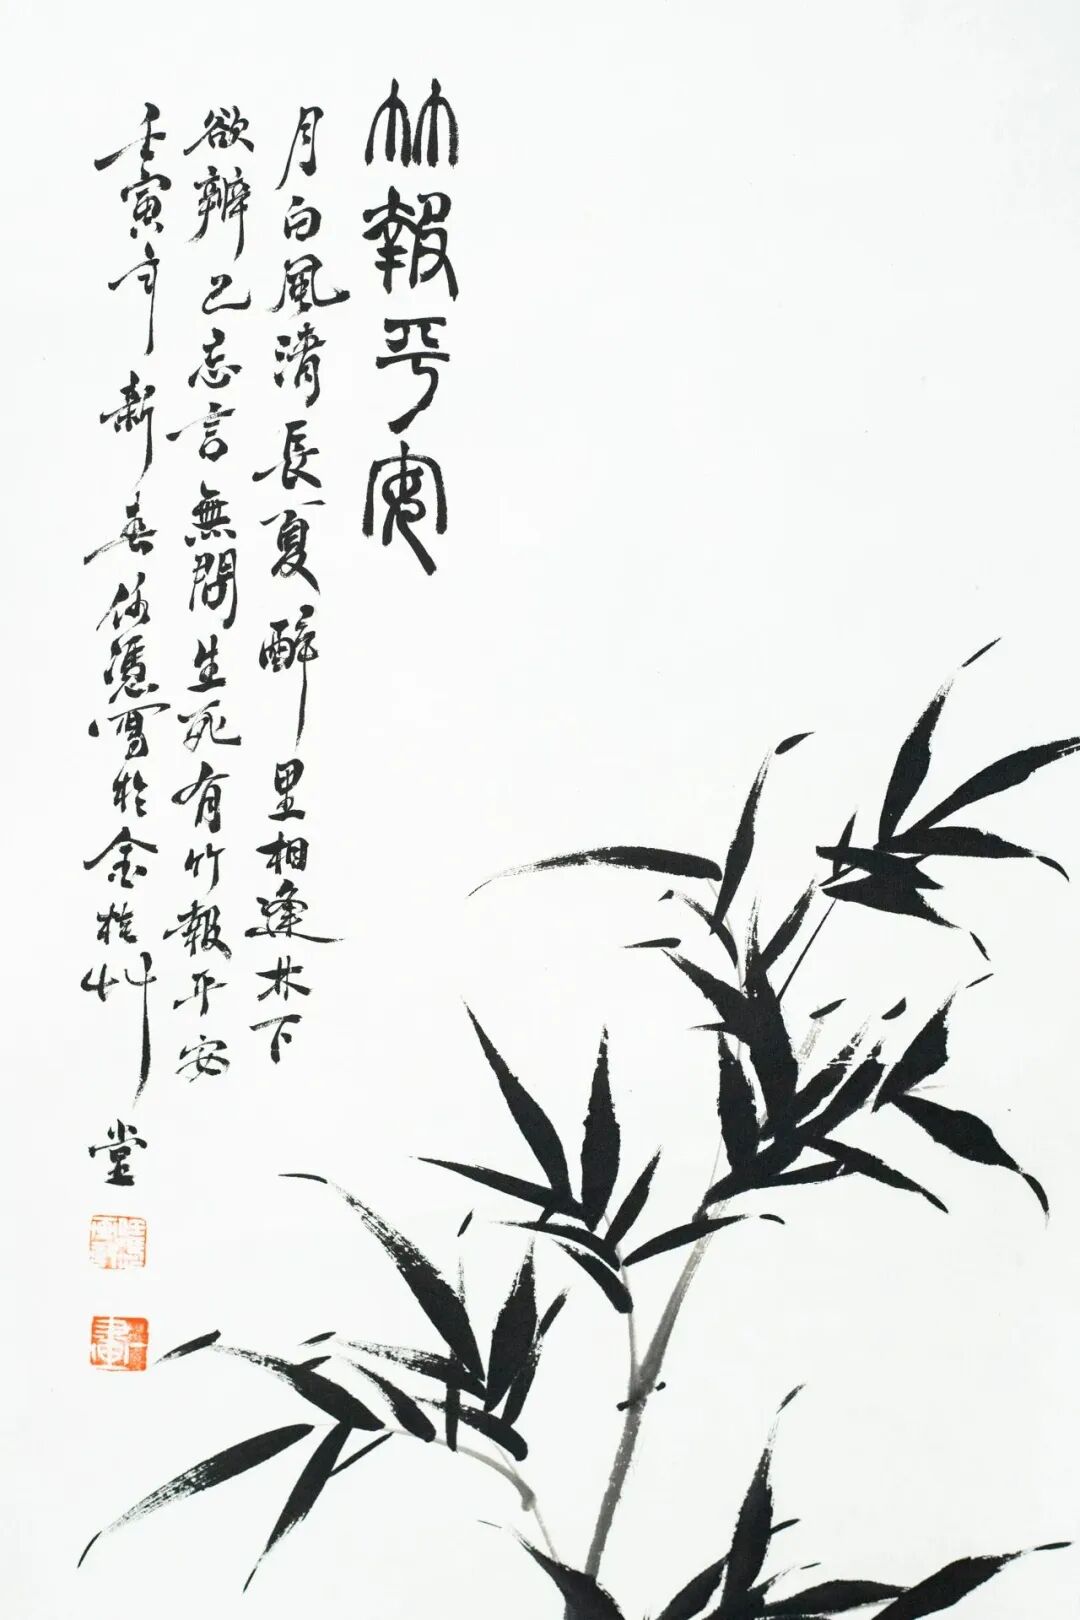 竹報平安
月白風清長夏醉里相逢林下
欲辨已忘言無問生死有竹報平安
壬寅年新春任憑寫於金桂艸堂